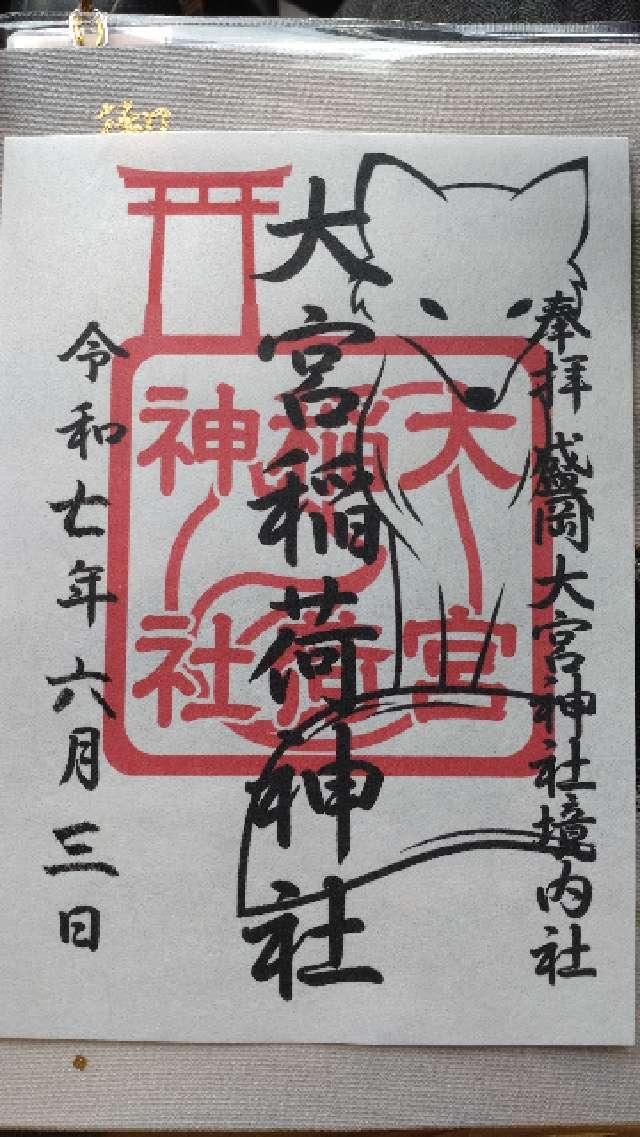 奉拝 盛岡大宮神社境内社
大宮稲荷神社
大宮
稲荷
神社
令和七年六月三日